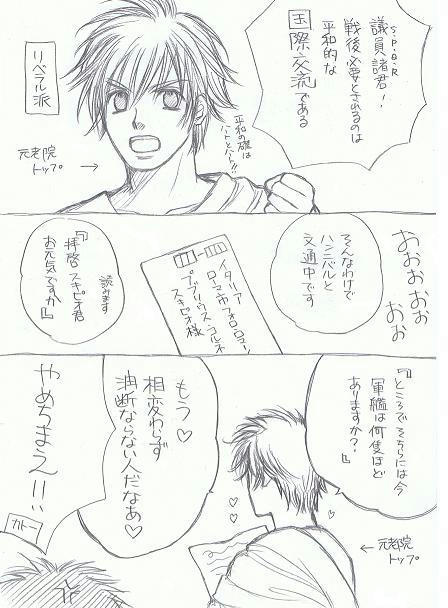 議員諸君!
S.P.Q.R
戦後必要とされるのは
平和的な
国際交流である
平和の礎は
ハートとハート!!
リベラル派
元老院
トップ
→
おおおおお
おお
そんなわけで
ハンニバルと
文通中です
イタリア
ローマ市フォロ・ロマーノ
プブリウス・コルネ
スキピオ様
読みます
『拝啓スキピオ君
お元気ですか』
『ところでそちらには今
軍艦は何隻ほど
ありますか?』
←元老院
トップ
もう♡
相変わらず
油断ならない人だなあ♡
やめちまえ!!
カトー